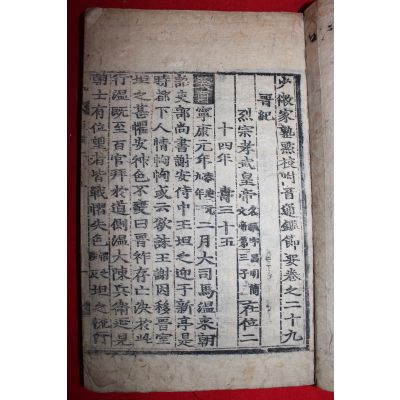 少微家塾點校附音通鑑節要卷之二十九
晋紀
烈宗孝武皇帝名曜字昌明簡文帝第三子在位二
十四年 壽三十五
癸酉寧康元年秦建元九年二月大司馬溫來朝
詔吏部尚書謝安侍中王坦之迎于新亭是
時都下人情恟恟或云欲誅王謝因移晋室
坦之甚懼安神色不變曰晋祚存亡決於此
行溫旣至百官拜於道側溫大陳兵衛延見
朝士有位望者皆戰慴失色坦之流汗